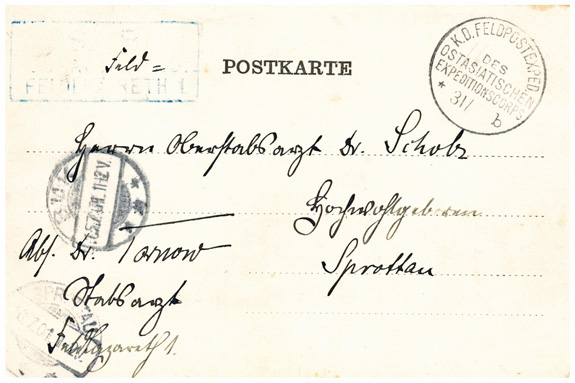 Feld=
POSTKARTE
FELDLAZARETH 1.
K.D. FELDPOSTEXPED.
DES
OSTASIATISCHEN
EXPEDITIONSCORPS
* 31/ b
Herrn Oberstabsarzt Dr. Scholz
Hochwohlgeboren
Sprottau
Abs. Dr. Tornow
Stabsarzt
Feldlazareth 1.